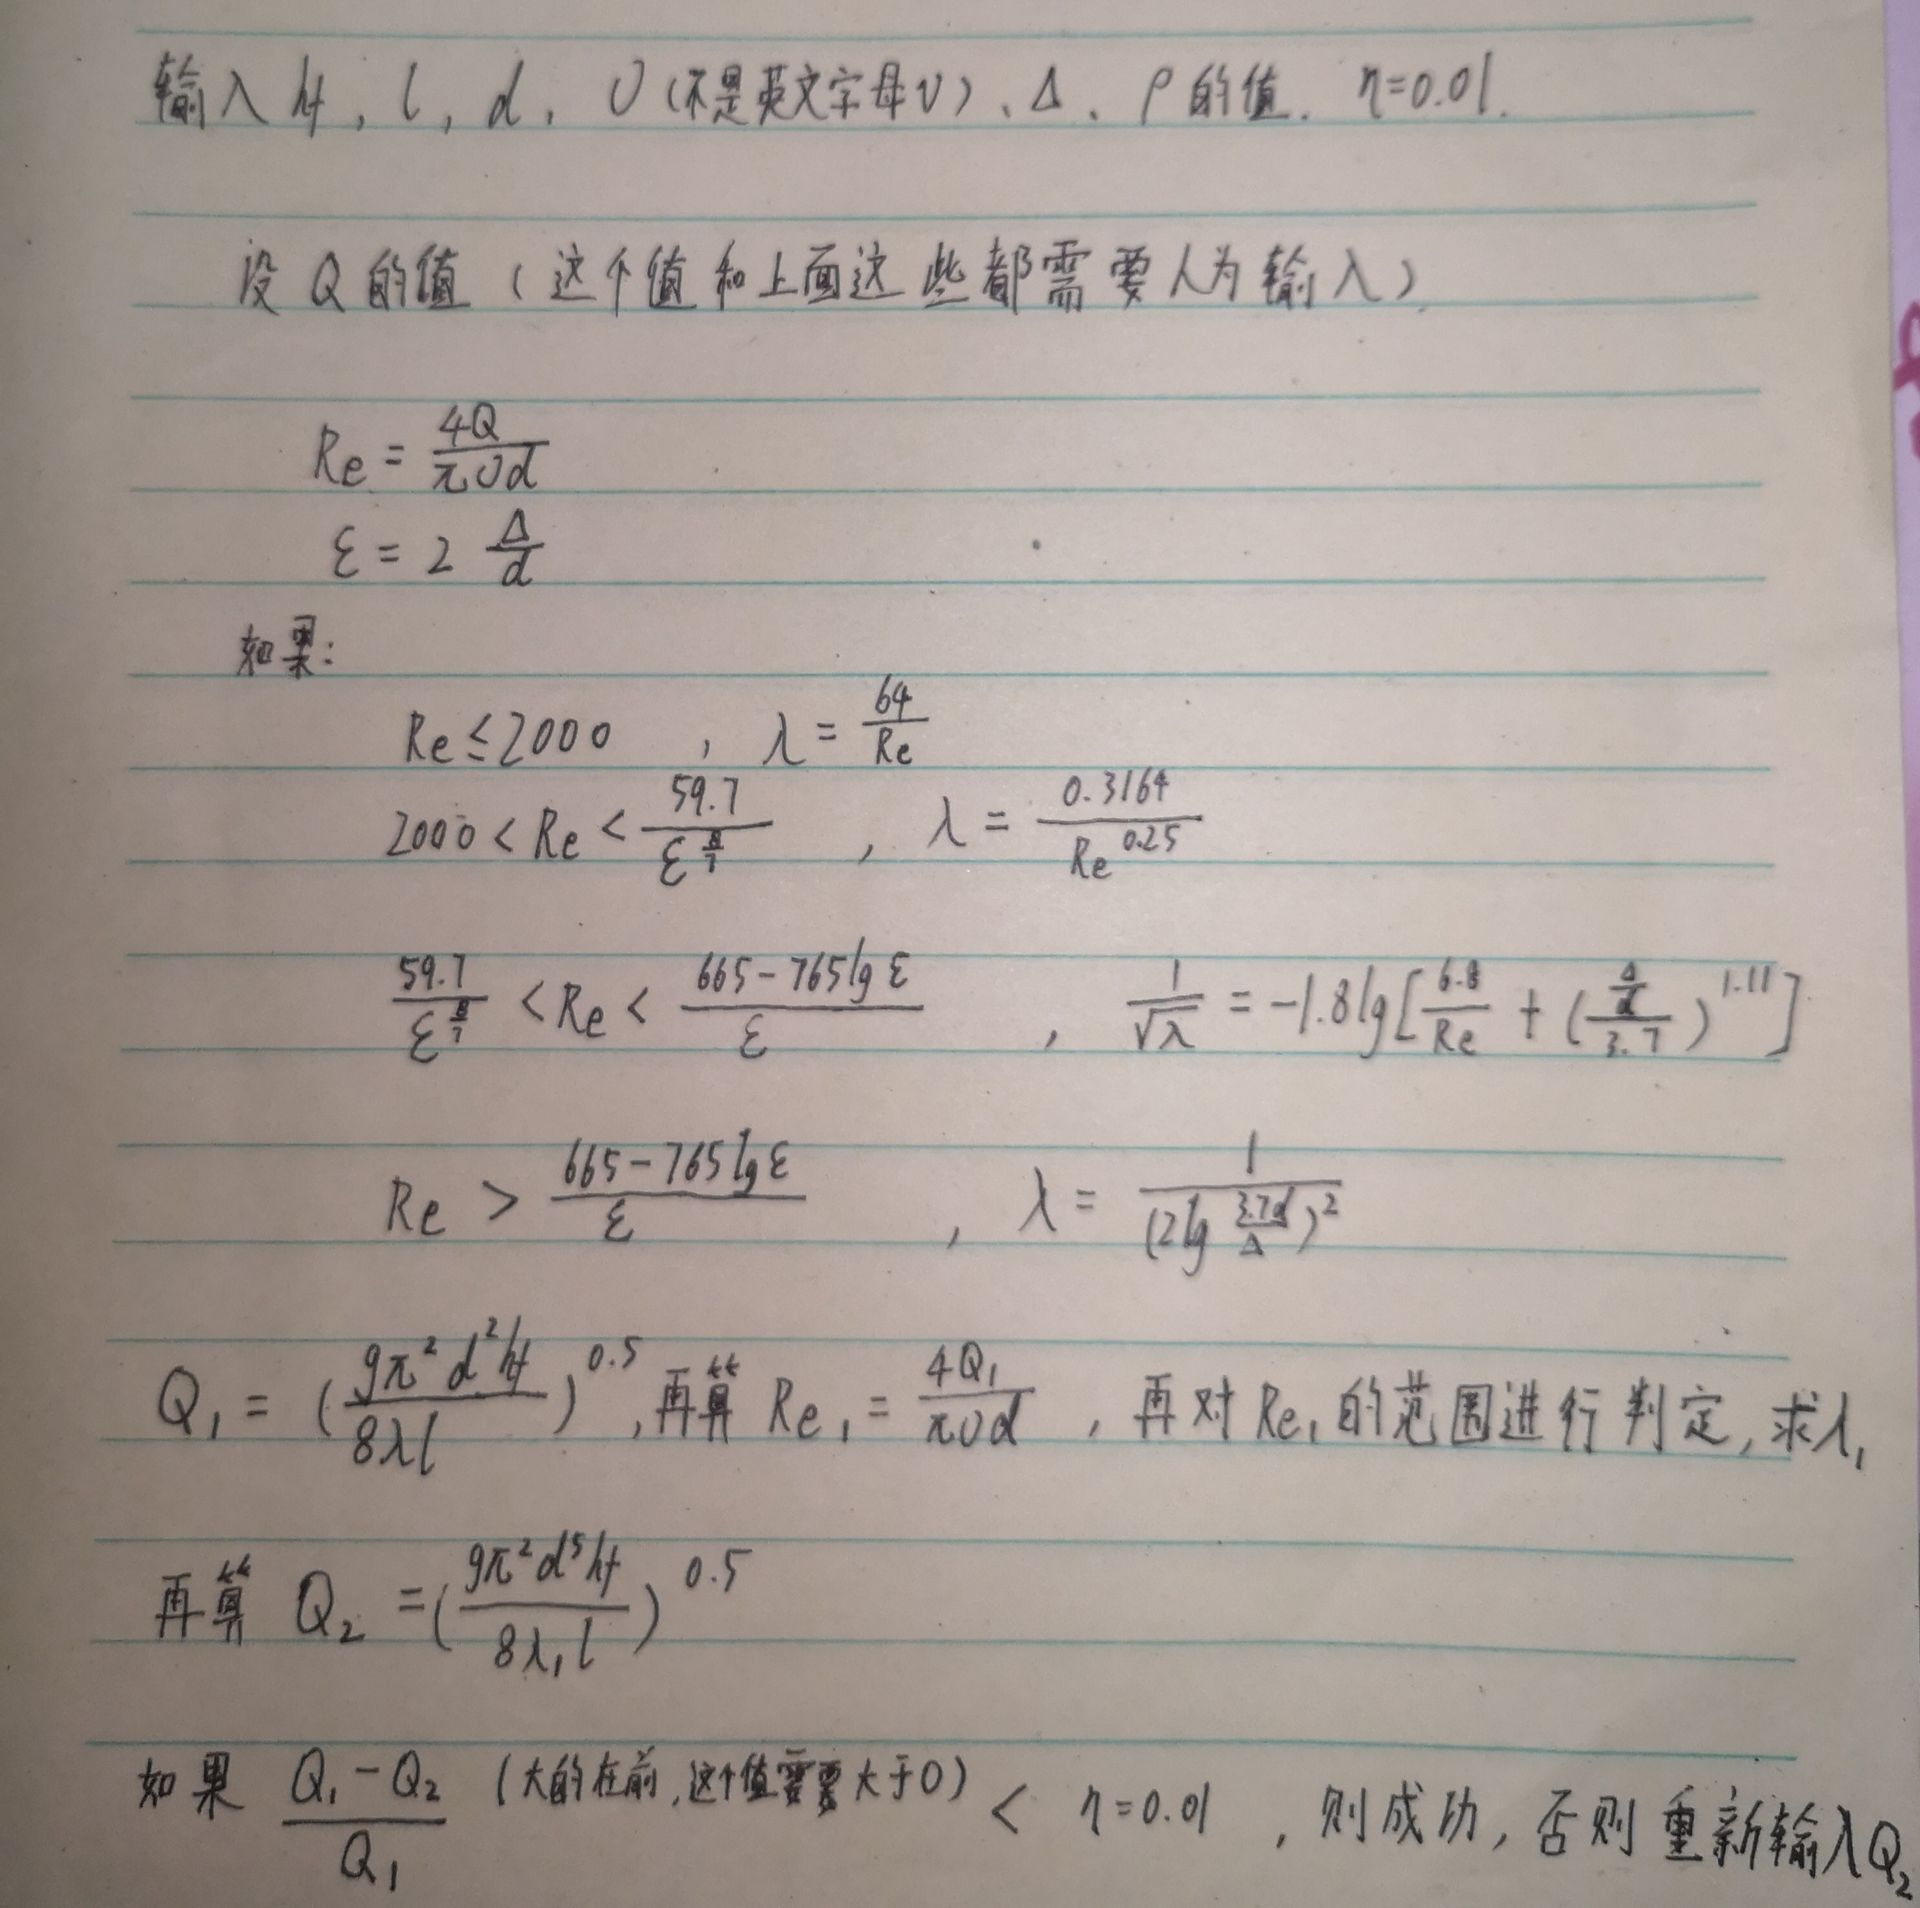 输入 hf, l, d, υ (不是英文字母v)、Δ、ρ的值. η=0.01.
设 Q 的值 (这个值和上面这些都需要人为输入)
Re = 4Q/(πυd)
ε = 2 Δ/d
如果:
Re≤2000 , λ = 64/Re
2000 < Re < 59.7/ε^(8/7) , λ = 0.3164/Re^0.25
59.7/ε^(8/7) < Re < (665-765lgε)/ε , 1/√λ = -1.8lg[6.8/Re + ((Δ/d)/3.7)^1.11]
Re > (665-765lgε)/ε , λ = 1/(2lg 3.7d/Δ)^2
Q₁ = (gπ²d²hf/(8λl))^0.5 ,再算 Re₁ = 4Q₁/(πυd) , 再对Re₁的范围进行判定,求λ₁
再算 Q₂ = (gπ²d⁵hf/(8λ₁l))^0.5
如果 (Q₁-Q₂)/Q₁ (大的在前,这个值需要大于0) < η=0.01 , 则成功, 否则重新输入Q₂